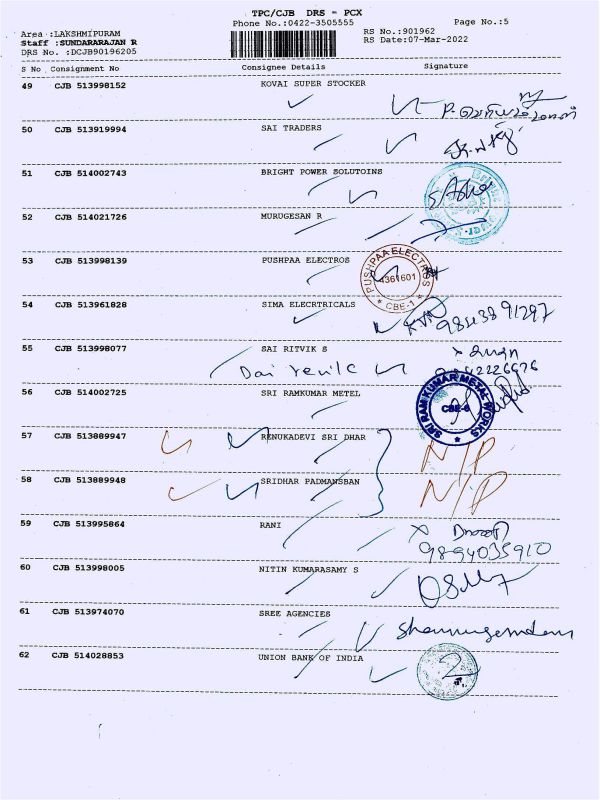 TPC/CJB DRS - PCX
Phone No.:0422-3505555
Page No.:5
Area :LAKSHMIPURAM
RS No.:901962
Staff :SUNDARARAJAN R
RS Date:07-Mar-2022
DRS No. :DCJB90196205
S No Consignment No Consignee Details Signature
49 CJB 513998152 KOVAI SUPER STOCKER
50 CJB 513919994 SAI TRADERS
51 CJB 514002743 BRIGHT POWER SOLUTOINS
52 CJB 514021726 MURUGESAN R
53 CJB 513998139 PUSHPAA ELECTROS
PUSHPAA ELECTROS
4361601
* CBE-1 *
54 CJB 513961828 SIMA ELECRTRICALS
9843891297
55 CJB 513998077 SAI RITVIK S
56 CJB 514002725 SRI RAMKUMAR METEL
SRI RAM KUMAR METAL WORKS
CBE-6
57 CJB 513889947 RENUKADEVI SRI DHAR N/P
58 CJB 513889948 SRIDHAR PADMANSBAN N/P
59 CJB 513995864 RANI
9894035910
60 CJB 513998005 NITIN KUMARASAMY S
61 CJB 513974070 SREE AGENCIES
62 CJB 514028853 UNION BANK OF INDIA